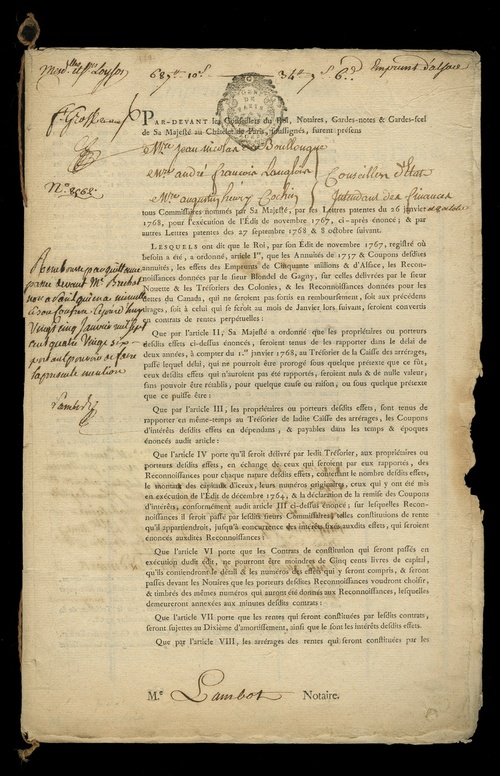 687 10 34 7 6 Emprunt d'alsace
PAR-DEVANT les Conseillers du Roi, Notaires, Gardes-notes & Gardes-scel
de Sa Majesté au Châtelet de Paris, soussignés, furent présens
Mre jean nicolas de Boullongne
Mre andré francois Langlois Conseillers d'Etat
Mre augustin henry Cochin Intendant des finances
N.º 8568
tous Commissaires nommés par Sa Majesté, par ses Lettres patentes du 26 janvier
1768, pour l'exécution de l'Édit de novembre 1767, ci-après énoncé; & par
autres Lettres patentes des 27 septembre 1768 & 8 octobre suivant.
LESQUELS ont dit que le Roi, par son Édit de novembre 1767, registré où
besoin a été, a ordonné, article Ier, que les Annuités de 1757 & Coupons desdites
annuités, les effets des Emprunts de Cinquante millions & d'Alsace, les Recon-
noissances données par le sieur Blondel de Gagny, sur celles délivrées par le sieur
Nouette & les Trésoriers des Colonies, & les Reconnoissances données pour les
dettes du Canada, qui ne seroient pas sortis en remboursement, soit aux précédens
tirages, soit à celui qui se feroit au mois de Janvier lors suivant, seroient convertis
en contrats de rentes perpétuelles:
Que par l'article II, Sa Majesté a ordonné que les propriétaires ou porteurs
desdits effets ci-dessus énoncés, seroient tenus de les rapporter dans le délai de
deux années, à compter du 1.er janvier 1768, au Trésorier de la Caisse des arrérages,
passé lequel délai, qui ne pourroit être prorogé sous quelque prétexte que ce fût,
ceux desdits effets qui n'auroient pas été rapportés, seroient nuls & de nulle valeur,
sans pouvoir être rétablis, pour quelque cause ou raison, ou sous quelque prétexte
que ce puisse être:
Que par l'article III, les propriétaires ou porteurs desdits effets, sont tenus de
rapporter en même-temps au Trésorier de ladite Caisse des arrérages, les Coupons
d'intérêts desdits effets en dépendans, & payables dans les temps & époques
énoncés audit article:
Que l'article IV porte qu'il seroit délivré par ledit Trésorier, aux propriétaires ou
porteurs desdits effets, en échange de ceux qui seroient par eux rapportés, des
Reconnoissances pour chaque nature desdits effets, contenant le nombre desdits effets,
le montant des capitaux d'iceux, leurs numéros originaires, ceux qui y ont été mis
en exécution de l'Édit de décembre 1764, & la déclaration de la remise des Coupons
d'intérêts, conformément audit article III ci-dessus énoncé; sur lesquelles Recon-
noissances il seroit passé par lesdits sieurs Commissaires telles constitutions de rente
qu'il appartiendroit, jusqu'à concurrence des intérêts fixés auxdits effets, qui seroient
énoncés auxdites Reconnoissances:
Que l'article VI porte que les Contrats de constitution qui seront passés en
exécution dudit édit, ne pourront être moindres de Cinq cents livres de capital,
qu'ils contiendront le détail & les numéros des effets qui y seront compris, & seront
passés devant les Notaires que les porteurs desdites Reconnoissances voudront choisir,
& timbrés des mêmes numéros qui auront été donnés aux Reconnoissances, lesquelles
demeureront annexées aux minutes desdits contrats:
Que l'article VII porte que les rentes qui seront constituées par lesdits contrats,
seront sujettes au Dixième d'amortissement, ainsi que le sont les intérêts desdits effets.
Que par l'article VIII, les arrérages des rentes qui seront constituées par les
M.e Lambot Notaire.